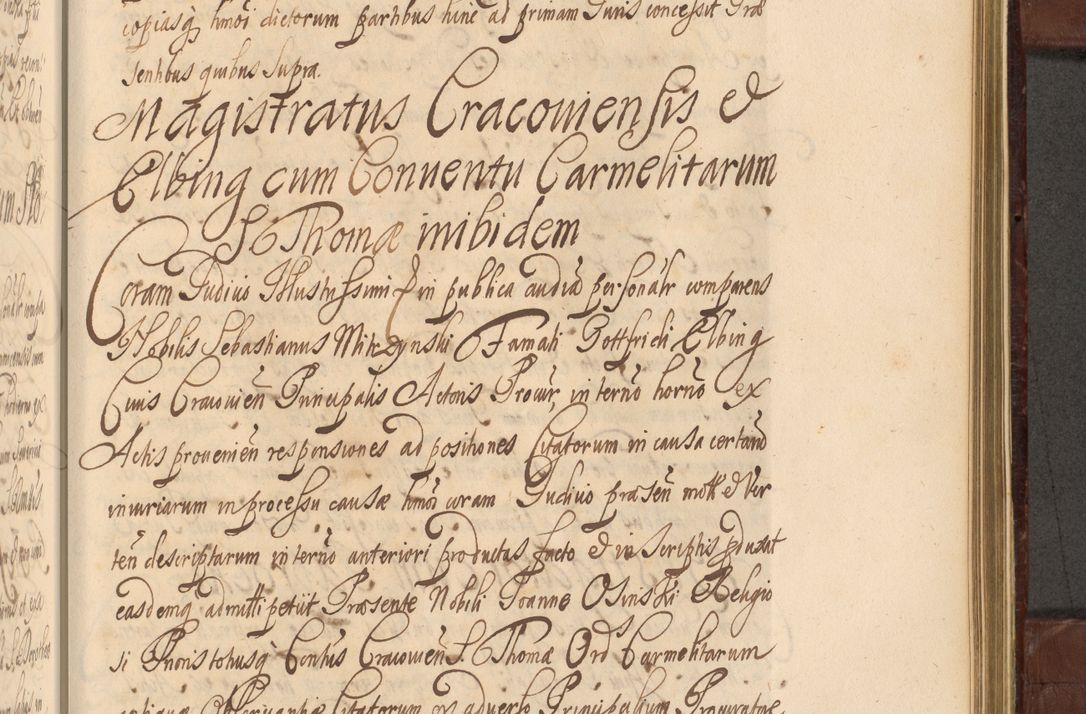 copiasq̃ hmõi dictorum partibus hinc ad primam Juris concessit Præ
sentibus quibus supra.
Magistratus Cracouiensis et
Elbing cum Conuentu Carmelitarum
S. Thomæ inibidem
Coram Judiuo Illustrissimi in publica audiã personalr comparens
Nobilis Sebastianus Mirzynski Famati Gottfridi Elbing
Ciuis Cracouieñ Principalis Actoris Procur, in termõ hornõ ex
Actis prouenieñ responsiones ad positiones Citatorum in causa certarũ
iniuriarum in processu causæ hmõi coram Judiuo præseñ mott et Ver
teñ descriptarum in termõ anteriori productas facto et in scriptis pduxit
easdemq admitti petiit Præsente Nobili Joanne Osinski Religio
si Prioris totiusq Contũs Cracouieñ S. Thomæ Ords Carmelitarum
antiquæ Obseruantiæ Citatorum ex aduerso Principalium Procuratore